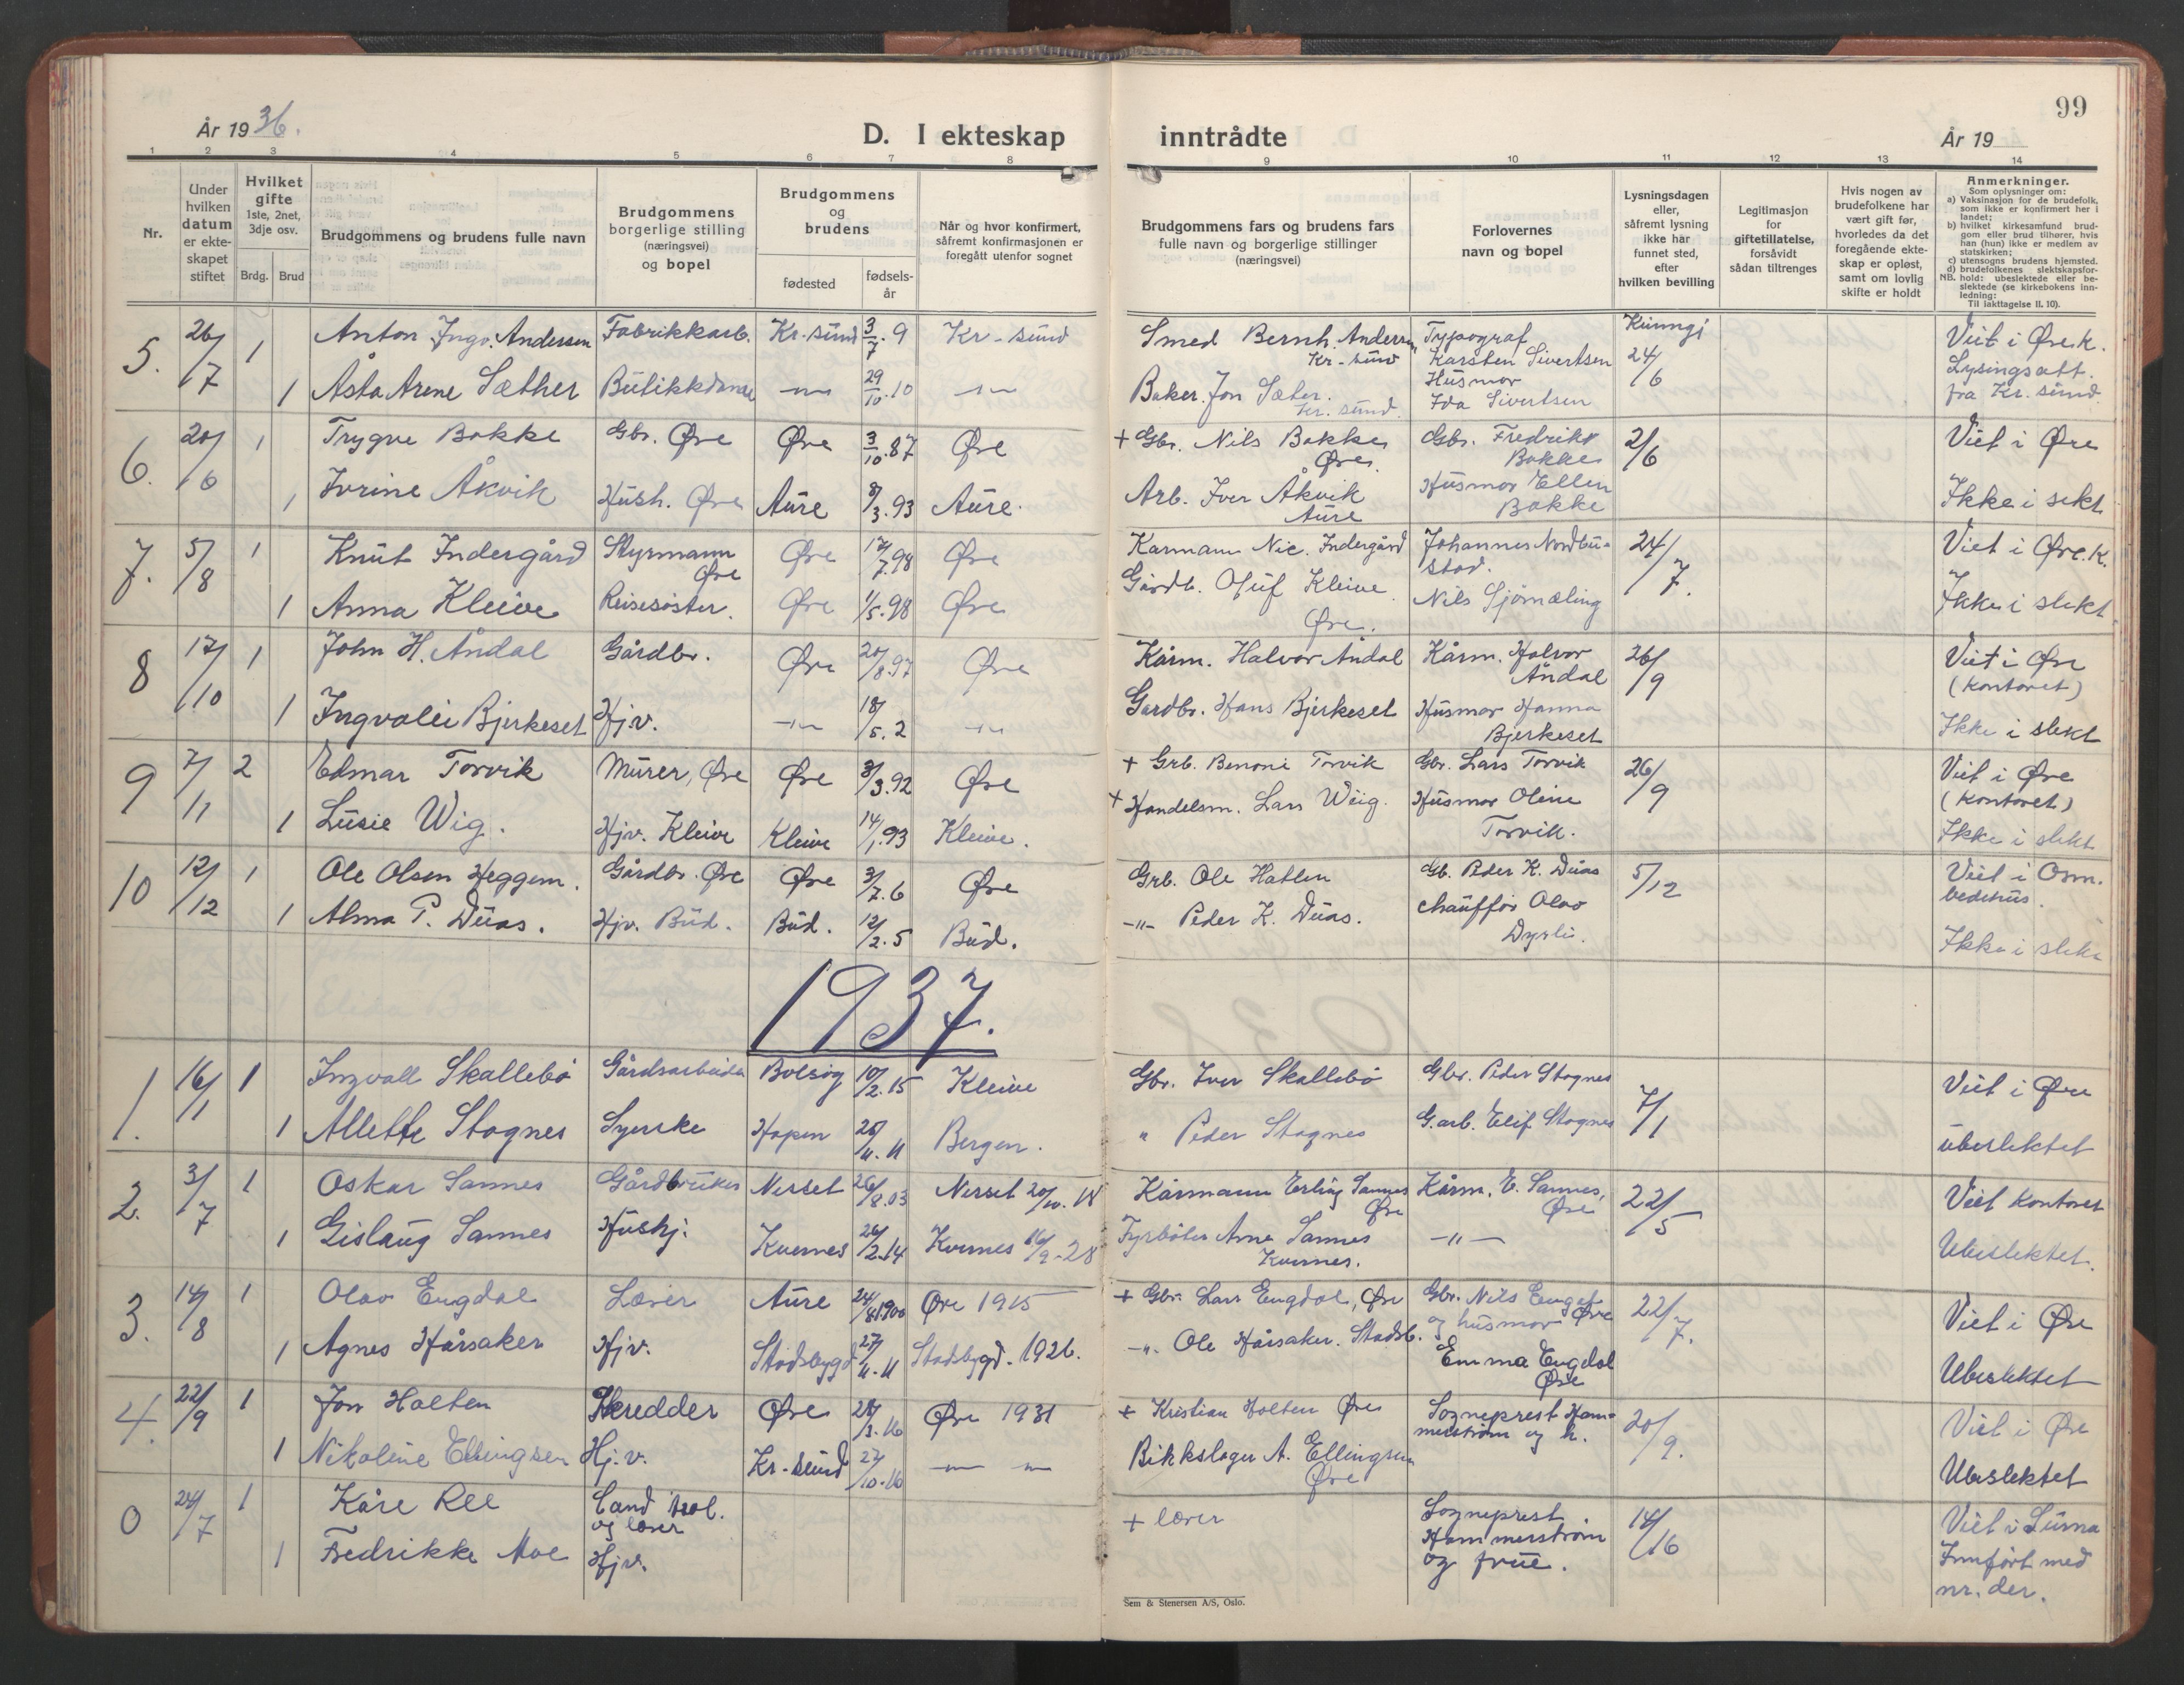 99
År 1936.
D. I ekteskap inntrådte
År 19
1 2 3 4 5 6 7 8 9 10 11 12 13 14
Nr.
Under hvilken datum er ekteskapet stiftet
Hvilket gifte 1ste, 2net, 3dje osv.
Brdg. Brud
Brudgommens og brudens fulle navn
Brudgommens borgerlige stilling (næringsvei) og bopel
Brudgommens og brudens
fødested
fødselsår
Når og hvor konfirmert, såfremt konfirmasjonen er foregått utenfor sognet
Brudgommens fars og brudens fars fulle navn og borgerlige stillinger (næringsvei)
Forlovernes navn og bopel
Lysningsdagen eller, såfremt lysning ikke har funnet sted, efter hvilken bevilling
Legitimasjon for giftetillatelse, forsåvidt sådan tiltrenges
Hvis nogen av brudefolkene har vært gift før, hvorledes da det foregående ekteskap er opløst, samt om lovlig skifte er holdt
Anmerkninger.
Som oplysninger om:
a) Vaksinasjon for de brudefolk, som ikke er konfirmert her i landet;
b) hvilket kirkesamfund brudgom eller brud tilhører, hvis han (hun) ikke er medlem av statskirken;
c) utensogns brudens hjemsted.
d) brudefolkenes slektskapsforhold: ubeslektede eller beslektede (se kirkebokens innledning:
NB.
Til iakttagelse II. 10).
5. 26/7 1 Anton Ingv. Andersen Fabrikkarb. Kr-sund 3/7.9 Kr-sund Smed Bernh. Andersen Kr-sund Typograf Karsten Sivertsen Kunngj 24/6 Viet i Øre k.
1 Åsta Arene Sæther Butikkdame -"- 29/10.10 -"- Baker Jon Sæter. Kr. sund. Husmor Ida Sivertsen Lysingsatt. fra Kr. sund
6. 20/6 1 Trygve Bakke Gbr. Øre Øre 3/10.87 Øre + Gbr. Nils Bakke Øre. Gbr. Fredrik Bakke 2/6 Viet i Øre
1 Ivrine Åkvik Hush. Øre Aure 8/3.93 Aure. Arb. Iver Åkvik Aure Husmor Ellen Bakke Ikke i slekt
7. 5/8 1 Knut Indergård Styrmann Øre Øre 12/7.98 Øre Karmann Nic. Indergård Johannes Nordbustad. 24/7. Viet i Øre. k.
1 Anna Kleive Reisesøster. Øre 1/5.98 Øre Gårdb. Oluf Kleive Øre. Nils Sjømæling Ikke i slekt
8 17/10 1 John H. Åndal Gårdbr. Øre 20/8.97 Øre Kårm. Halvor Åndal Kårm. Halvor Åndal 26/9 Viet i Øre (kontoret)
1 Ingvalei Bjerkeset Hjv. -"- 18/5.2 -"- Gardbr. Hans Bjerkeset Husmor Hanna Bjerkeset Ikke i slekt
9 7/11 2 Edmar Torvik Murer, Øre Øre 8/3.92 Øre + Grb. Benoni Torvik Gbr. Lars Torvik 26/9 Viet i Øre (kontoret)
1 Lusie Wig. Hjv. Kleive Kleive 14/1.93 Kleive. + Handelsm. Lars Wiig. Husmor Oline Torvik. Ikke i slekt
10 12/12 1 Ole Olsen Heggem. Gårdbr. Øre Øre 3/7.6 Øre Grb. Ole Hatlen Gb. Peder K. Duas 5/12 Viet i Osm. bedehus.
1 Alma P. Duas. Hjv. Bud. Bud. 12/2.5 Bud. -"- Peder K. Duas. Chauffør Olav Dyrli. Ikke i slekt
1937.
1. 16/1 1 Ingvall Skallebø Gårdsarbeider Bolsøy 10/2.15 Kleive Gbr. Iver Skallebø Gbr. Peder Stognes 7/1 Viet i Øre
1 Allette Stognes Syerske Hopen 25/11.11 Bergen. " Peder Stognes G.arb. Elif Stognes ubeslektet
2. 3/7 1 Oskar Sannes Gårdbruker Nesset 26/8.03 Nesset 20/10.18 Kårmann Erling Sannes Øre Kårm. E. Sannes, Øre 22/5 Viet kontoret
1 Gislaug Sannes Hushj. Kvernes 26/2.14 Kvernes 16/9-28 Fyrbøter Arne Sannes Kvernes. -"- Ubeslektet.
3. 14/8 1 Olav Engdal Lærer Aure 24/8 1900 Øre 1915 + Gbr. Lars Engdal, Øre Gbr. Nils Engdal og husmor Øre 22/7. Viet i Øre
1 Agnes Hårsaker Hjv. Stadsbygd 27/11.11 Stadsbygd. 1926. -"- Ole Hårsaker. Stadsb. Emma Engdal Øre Ubeslektet
4. 22/9 1 Jon Holten Skredder Øre 28/3.16 Øre 1931 + Kristian Holten Øre Sogneprest Hammerstrøm og h. 20/9. Viet i Øre
1 Nikoline Ellingsen Hj.v. Kr-sund 27/10.16 -"- -"- Blikkslager A. Ellingsen Øre Ubeslektet
0 24/7 1 Kåre Ree Cand. teol. og lærer + lærer Sogneprest Hammerstrøm og frue. 14/16 Viet i Surna
1 Fredrikke Moe Hjv. Innført med nr. der.
Sem & Stenersen A/S, Oslo.